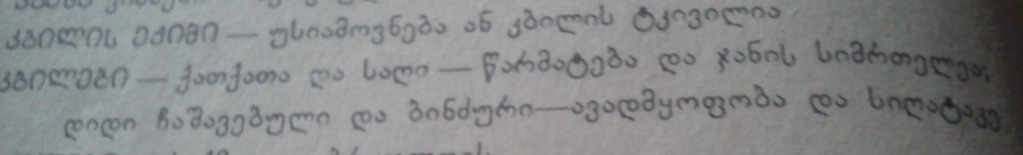 კბილის ექიმი — უსიამოვნება ან კბილის ტკივილია
კბილები — ქათქათა და საღი — წარმატება და ჯანის სიმრთელეა;
დიდი ჩაშავებული და ბინძური — ავადმყოფობა და სიღატაკე